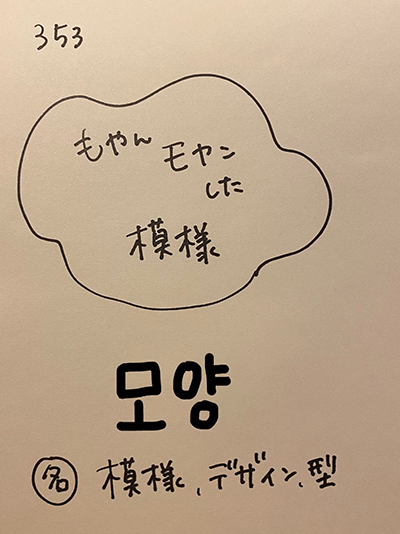 353
もやん モヤン
した
模様
모양
名 模様、デザイン、型